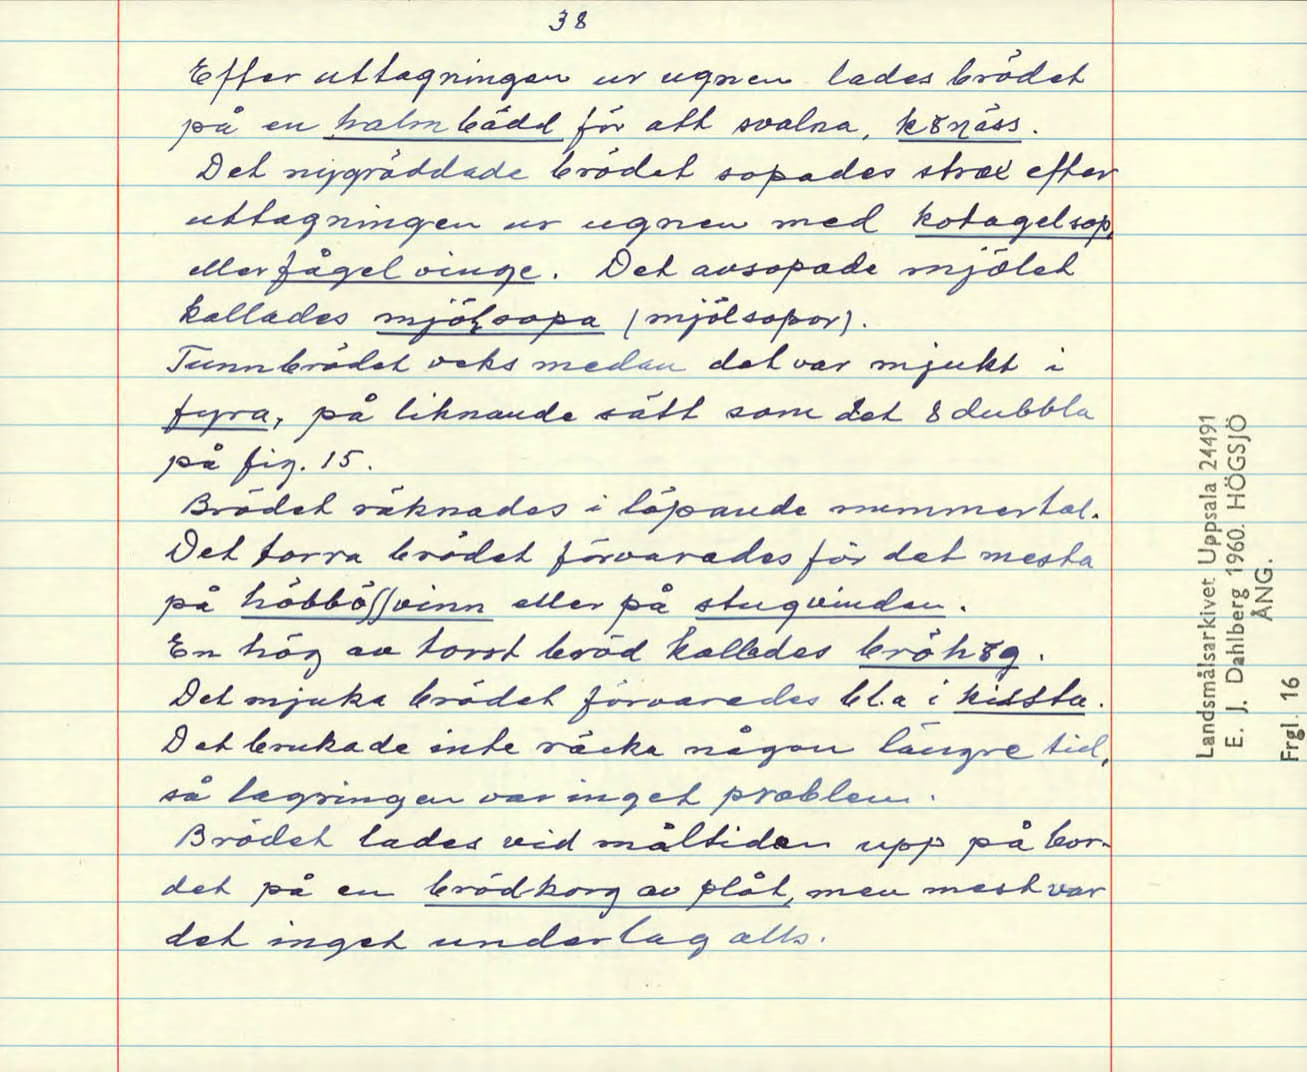 38
Efter uttagningen ur ugnen lades brödet
på en halmbädd för att svalna, k8ŋäss.
Det nygräddade brödet sopades strax efter
uttagningen ur ugnen med kotagelsop,
eller fågelvinge. Det avsopade mjölet
kallades mjöłsopa (mjölsopor).
Tunnbrödet veks medan det var mjukt i
fyra, på liknande sätt som det 8 dubbla
på fig. 15.
Brödet räknades i löpande nummertal.
Det torra brödet förvarades för det mesta
på höbböʃʃvinn eller på stugvinden.
En hög av torrt bröd kallades bröh8g.
Det mjuka brödet förvarades bl.a i kissta.
Det brukade inte räcka någon längre tid,
så lagringen var inget problem.
Brödet lades vid måltiden upp på bor-
det på en brödkorg av plåt, men mest var
det inget underlag alls.
Landsmålsarkivet Uppsala 24491
E. J. Dahlberg 1960. HÖGSJÖ
ÅNG.
Frgl. 16